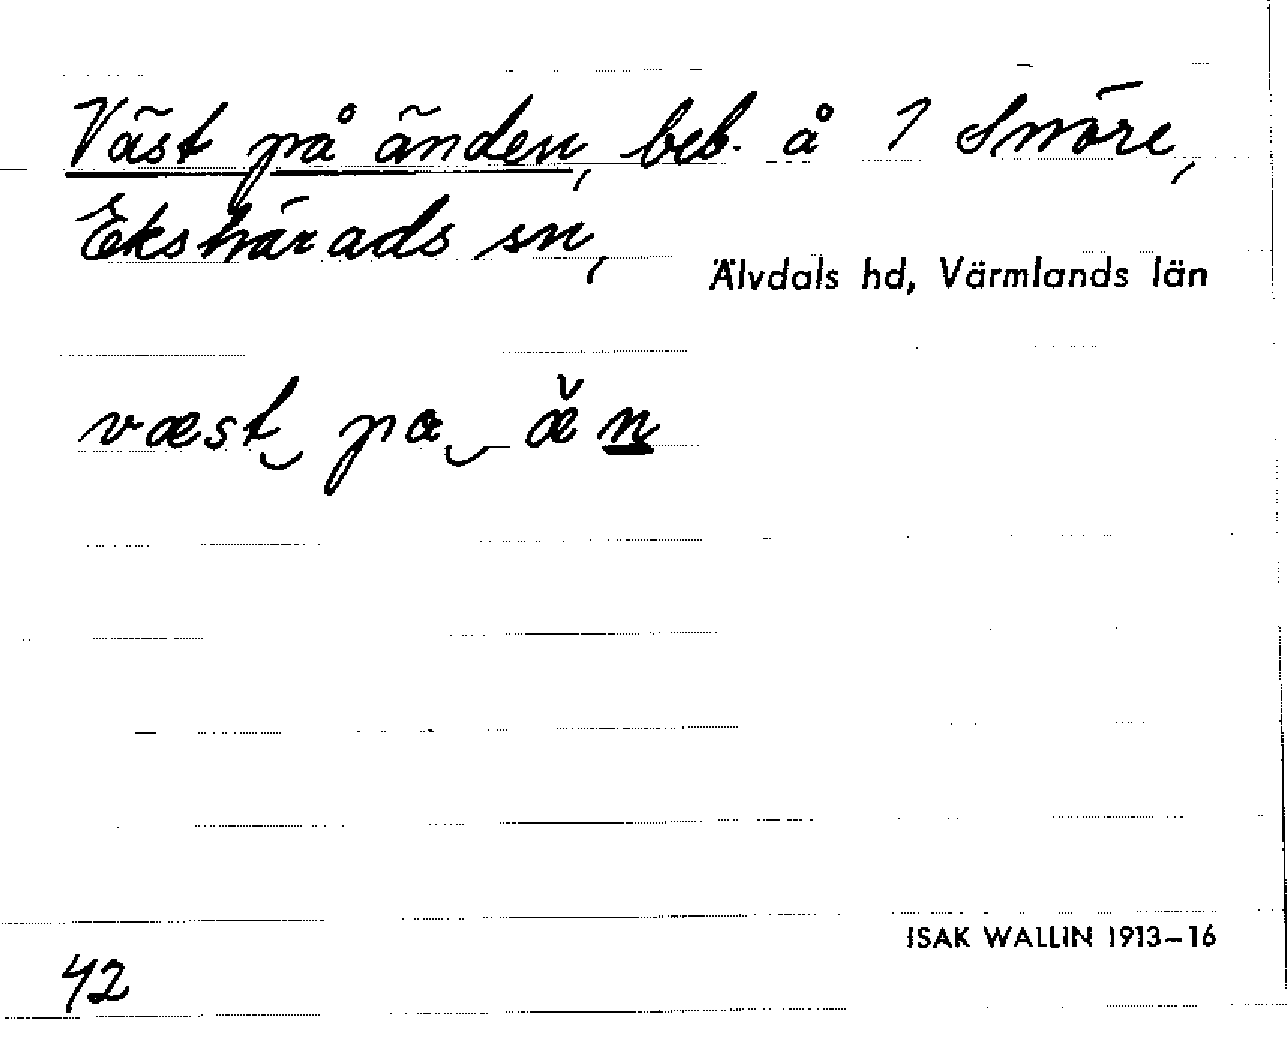 Väst på änden, beb. å 1 Snöre,
Ekshärads sn,
Älvdals hd, Värmlands län
væst‿ pa‿ æ̌n̲
ISAK WALLIN 1913–16
42